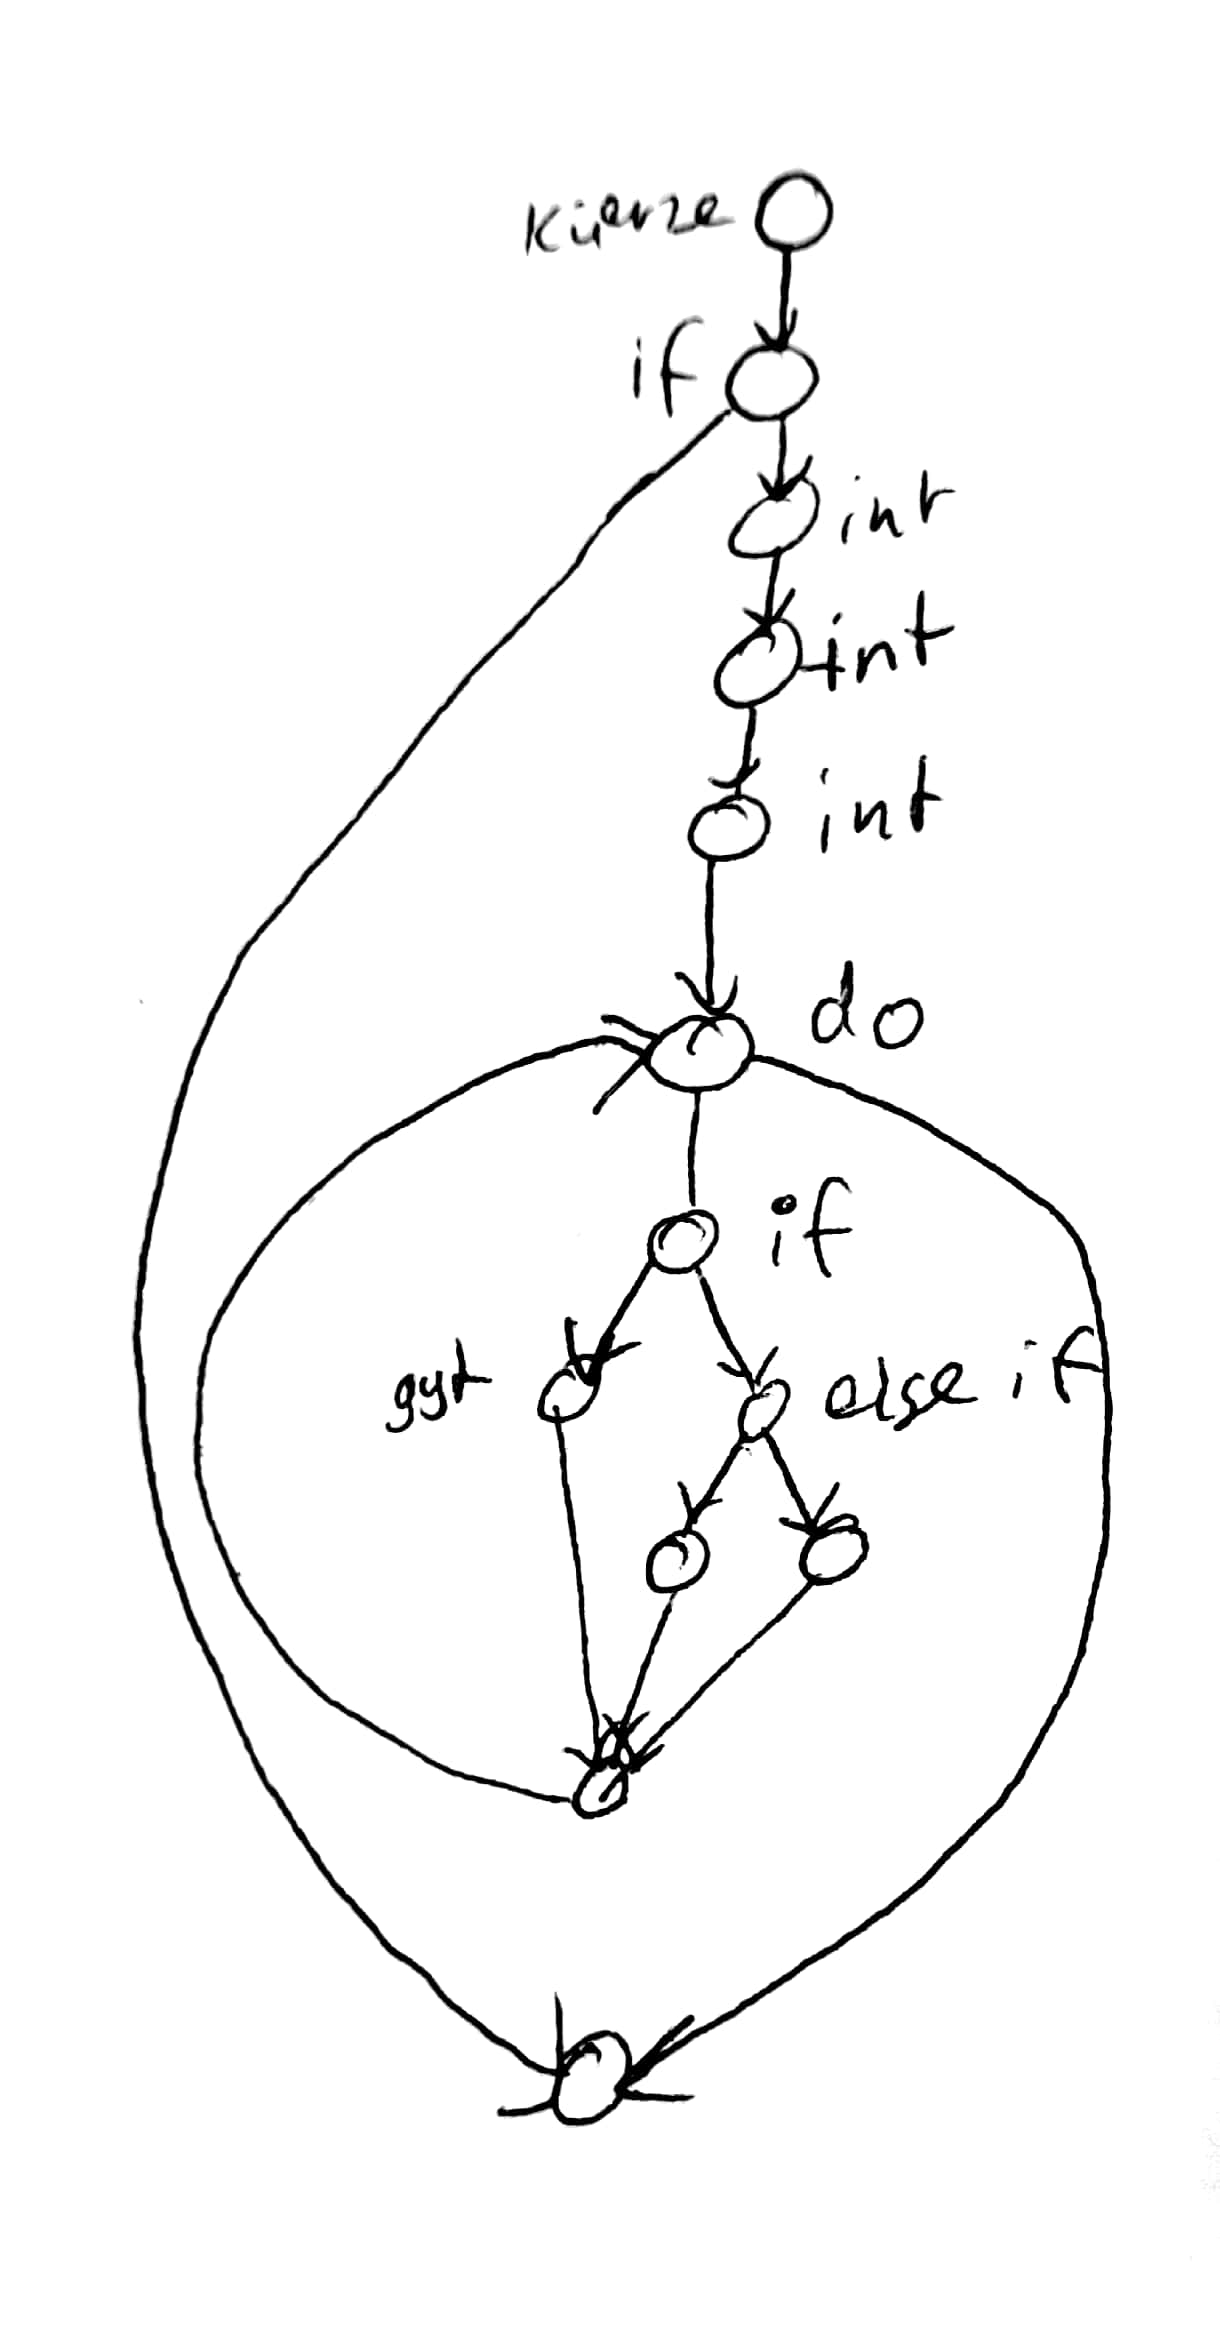 Küerze
if
int
int
int
do
if
gyt
else if